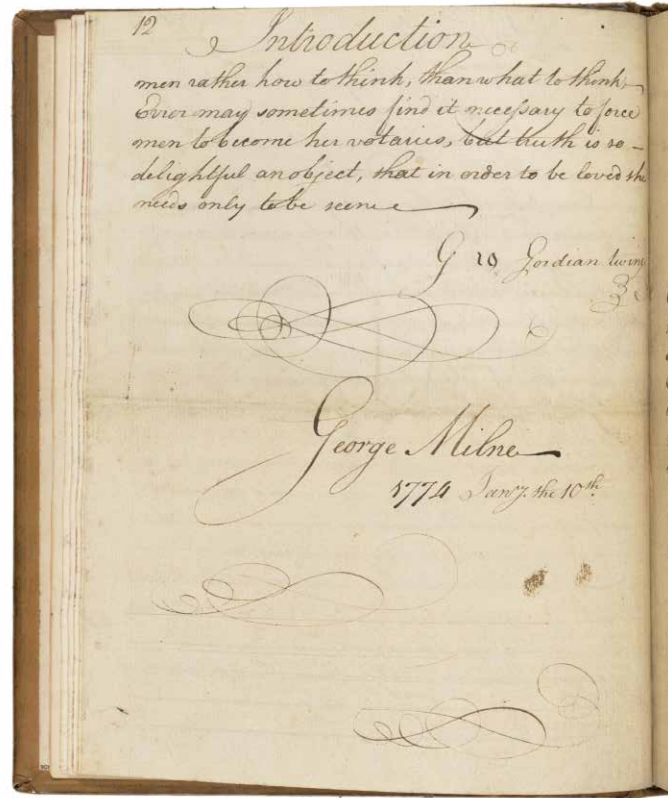 12
Introduction
men rather how to think, than what to think,
Error may sometimes find it necessary to force
men to become her votaries, but truth is so
delightful an object, that in order to be loved she
needs only to be seen
G
Gordian
George Milne
1774 Jany. the 10th